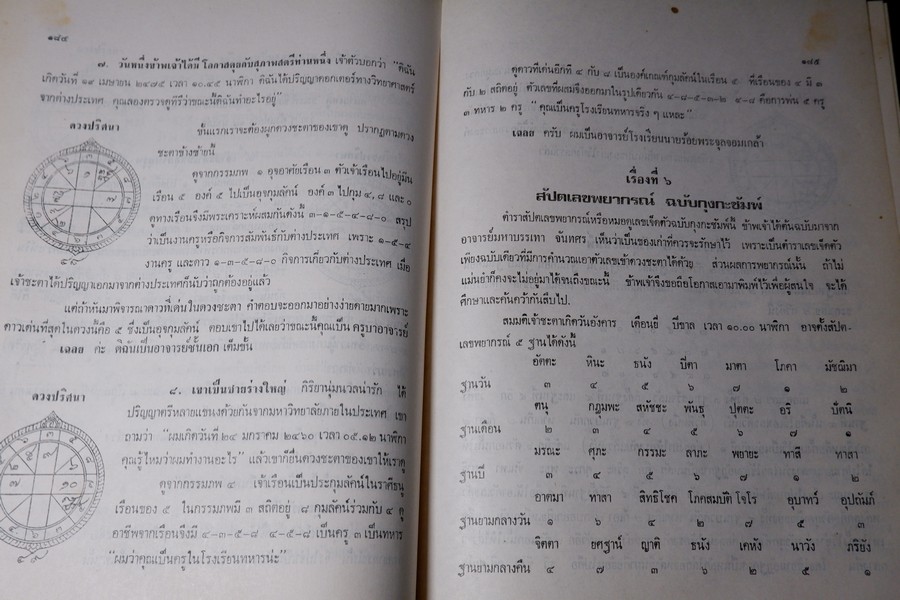 ๑๘๔
๗. วันหนึ่งข้าพเจ้าได้มีโอกาสคุยกับสุภาพสตรีท่านหนึ่ง เจ้าตัวบอกว่า "ดิฉัน
เกิดวันที่ ๑๙ เมษายน ๒๔๗๕ เวลา ๑๐.๔๕ นาฬิกา ดิฉันได้ปริญญาดอกเตอร์ทางวิทยาศาสตร์
จากต่างประเทศ คุณลองตรวจดูทีรึว่าขณะนี้ดิฉันทำอะไรอยู่"
ดวงปริศนา
ขั้นแรกเราจะต้องผูกดวงชะตาของเขาดู ปรากฏตามดวง
ชะตาข้างซ้ายนี้
ดูจากกรรมภพ ๑ อุจอาศัยเรือน ๓ ตัวเจ้าเรือนไปอยู่มีน
เรือน ๕ องค์ ๕ ไปเป็นอุจกุมลัคน์ องค์ ๓ ไปกุม ๔, ๘ และ ๐
ดูทางเรือนจึงมีพระเคราะห์ผสมกันดังนี้ ๓-๑-๕-๔-๘-๐ สรุป
ว่าเป็นงานครูหรือกิจการสัมพันธ์กับต่างประเทศ เพราะ ๑-๕-๔
งานครู และดาว ๑-๓-๕-๘-๐ กิจการเกี่ยวกับต่างประเทศ เมื่อ
เจ้าชะตาได้ปริญญาเอกมาจากต่างประเทศก็นับว่าถูกต้องอยู่แล้ว
แต่ถ้าหันมาพิจารณาดาวที่เด่นในดวงชะตา คำตอบจะออกมาอย่างง่ายดายมากเพราะ
ดาวเด่นที่สุดในดวงนี้คือ ๕ ซึ่งเป็นอุจกุมลัคน์ ตอบเขาไปได้เลยว่าขณะนี้คุณเป็น ครูบาอาจารย์
เฉลย ค่ะ ดิฉันเป็นอาจารย์ชั้นเอก เต็มขั้น
ดวงปริศนา
๘. เขาเป็นชายร่างใหญ่ กิริยานุ่มนวลน่ารัก ได้
ปริญญาตรีหลายแขนงด้วยกันจากมหาวิทยาลัยภายในประเทศ เขา
ถามว่า "ผมเกิดวันที่ ๒๔ มกราคม ๒๔๖๐ เวลา ๐๕.๑๒ นาฬิกา
คุณรู้ไหมว่าผมทำงานอะไร" แล้วเขาก็ยื่นดวงชะตาของเขาให้เราดู
ดูจากกรรมภพ ๔ เจ้าเรือนเป็นประกุมลัคน์ในราศีธนู
เรือนของ ๕ ในกรรมภพมี ๓ สถิตอยู่ ๘ กุมลัคน์ร่วมกับ ๔ ดู
อาชีพจากเรือนจึงมี ๔-๓-๕-๘ ๔-๕-๘ เป็นครู ๓ เป็นทหาร
"ผมว่าคุณเป็นครูในโรงเรียนทหารน่ะ"
๑๘๕
ดูดาวที่เด่นอีกที ๔ กับ ๘ เป็นองค์เกณฑ์กุมลัคน์ในเรือน ๕ ที่เรือนของ ๔ มี ๓
กับ ๒ สถิตอยู่ ตัวเลขที่ผสมจึงออกมาในรูปเดียวกัน ๔-๘-๕-๓-๒ ๔-๘ คือการพ่น ๕ ครู
๓ ทหาร ๒ ครู "คุณเป็นครูโรงเรียนทหารจริง ๆ แหละ"
เฉลย ครับ ผมเป็นอาจารย์โรงเรียนนายร้อยพระจุลจอมเกล้า
เรื่องที่ ๖
สัปตเลขพยากรณ์ ฉบับกุงกะซัมพ์
ตำราสัปตเลขพยากรณ์หรือหมอดูเลขเจ็ดตัวฉบับกุงกะซัมพ์นี้ ข้าพเจ้าได้ต้นฉบับมาจาก
อาจารย์มหาบรรเทา จันทศร เห็นว่าเป็นของเก่าที่ควรจะรักษาไว้ เพราะเป็นตำราเลขเจ็ดตัว
เพียงฉบับเดียวที่มีการคำนวณเอาตัวเลขเข้าดวงชะตาได้ด้วย ส่วนผลการพยากรณ์นั้น ถ้าไม่
แม่นยำก็คงจะไม่อยู่มาได้จนถึงขณะนี้ ข้าพเจ้าจึงขอถือโอกาสเอามาพิมพ์ไว้เพื่อผู้สนใจ จะได้
ศึกษาและค้นคว้ากันสืบไป.
สมมติเจ้าชะตาเกิดวันอังคาร เดือนยี่ ปีขาล เวลา ๑๐.๐๐ นาฬิกา อาจตั้งสัปต-
เลขพยากรณ์ ๕ ฐานได้ดังนี้
อัตตะ หินะ ธนัง ปิตา มาตา โภคา มัชฌิมา
ฐานวัน ๓ ๔ ๕ ๖ ๗ ๑ ๒
ตนุ กฎุมพะ สหัชชะ พันธุ ปุตตะ อริ ปัตนิ
ฐานเดือน ๒ ๓ ๔ ๕ ๖ ๗ ๑
มรณะ ศุภะ กรรมะ ลาภะ พยายะ ทาสี ทาสา
ฐานปี ๓ ๔ ๕ ๖ ๗ ๑ ๒
อาตมา ทาสา สิทธิโชค โภคสมบัติ โจโร อุบาทว์ อุปถัมภ์
ฐานยามกลางวัน ๑ ๖ ๔ ๒ ๗ ๕ ๓
จิตตา ยศฐาน์ ญาติ ธนัง เคหัง นาวัง ภริยัง
ฐานยามกลางคืน ๔ ๗ ๓ ๖ ๒ ๕ ๑